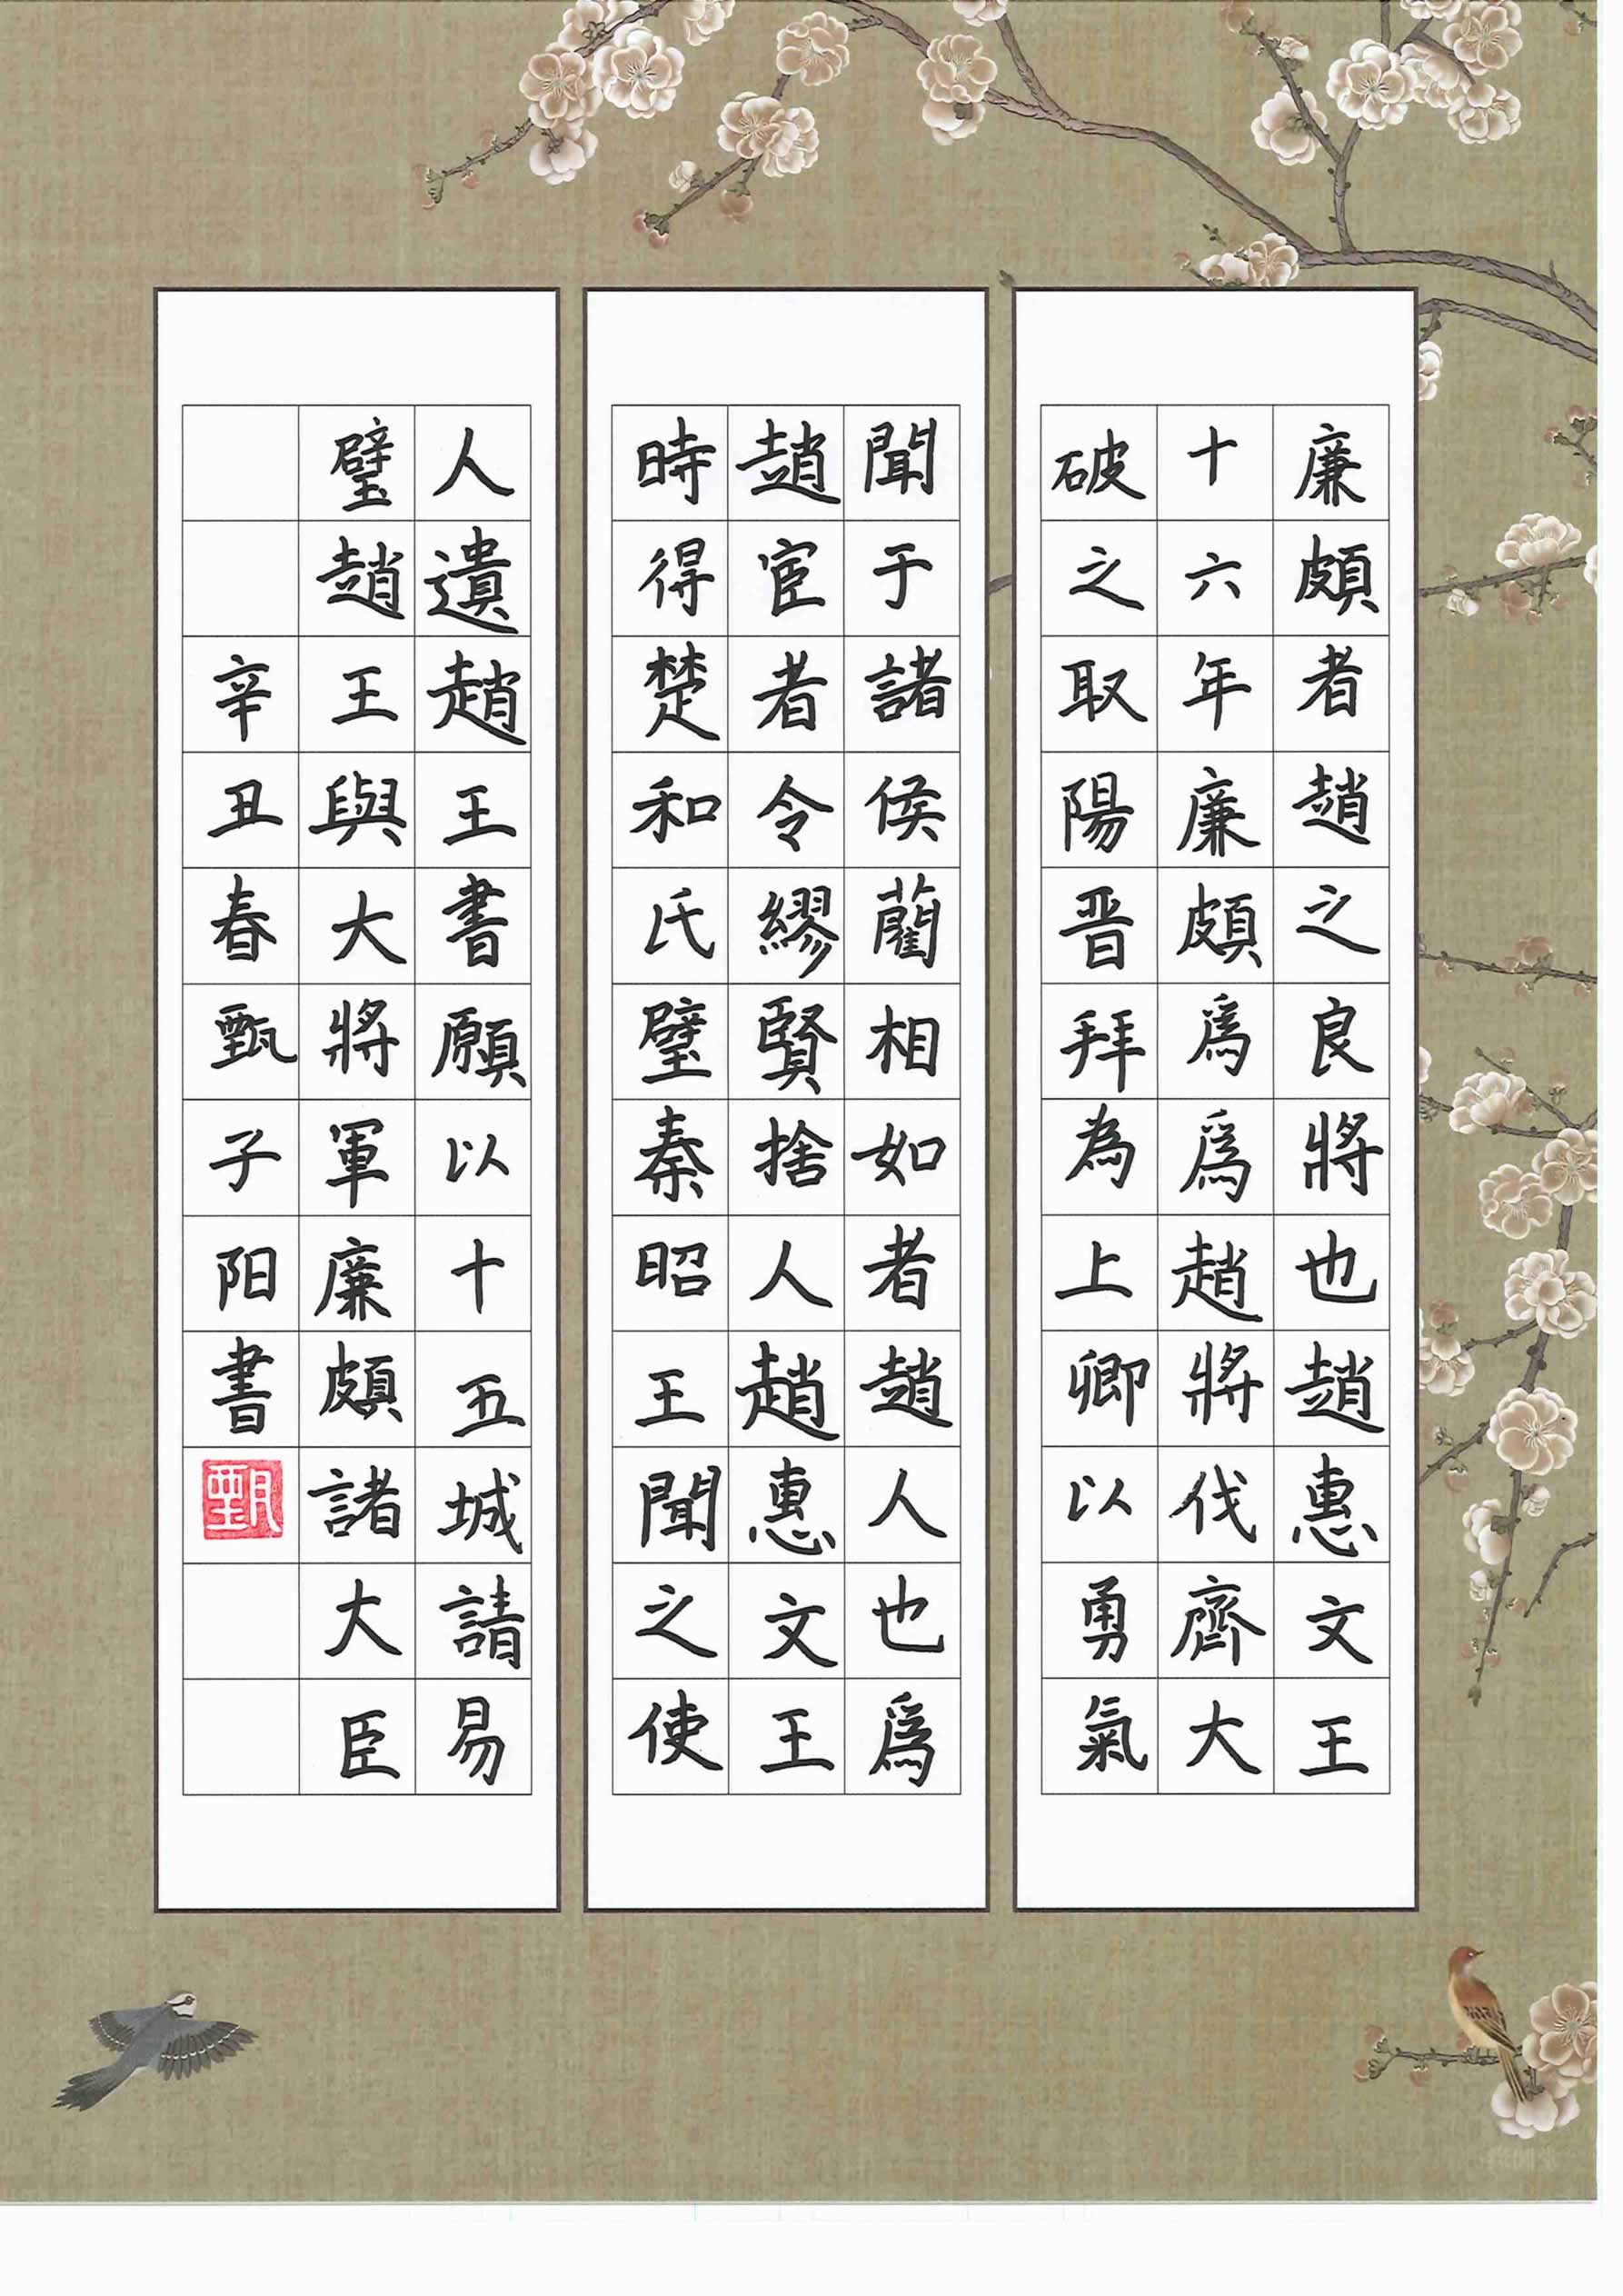 廉頗者趙之良將也趙惠文王
十六年廉頗爲爲趙將伐齊大
破之取陽晋拜為上卿以勇氣
聞于諸侯藺相如者趙人也爲
趙宦者令繆賢捨人趙惠文王
時得楚和氏璧秦昭王聞之使
人遺趙王書願以十五城請易
璧趙王與大將軍廉頗諸大臣
辛丑春甄子阳書
甄